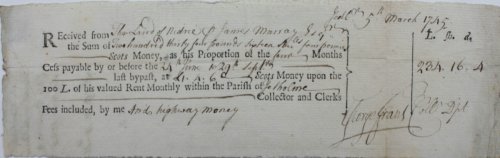 5th March 1745
Received from The Laird of Nidrie & James Murray Esqr
the Sum of Two hundred thirty four pounds sixteen shills four pennies
Scots Money, as his Proportion of the four Months
Cess payable by or before the 24 June & 29th Septr
last bypast, at £1. 4. 6d Scots Money upon the
100 L. of his valued Rent Monthly within the Parish of
Collector and Clerks
Fees included, by me And highway money
George Grant
L. S. d
234. 16. 4